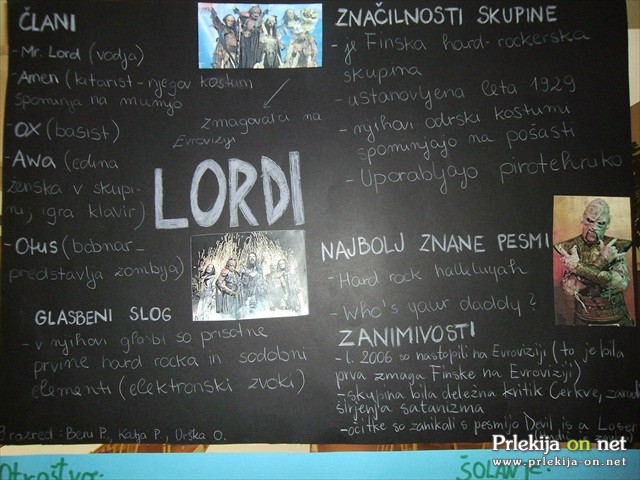 ČLANI
- Mr. Lord (vodja)
- Amen (kitarist - njegov kostum
spominja na mumijo
- OX (basist)
- Awa (edina
ženska v skupi-
ni, igra klavir)
- Otus (bobnar -
predstavlja zombija)
GLASBENI SLOG
- v njihovi glasbi so prisotne
prvine hard rocka in sodobni
elementi (elektronski zvoki)
zmagovalci na
Evroviziji
LORDI
ZNAČILNOSTI SKUPINE
- je Finska hard-rockerska
skupina
- ustanovljena leta 1929
- njihovi odrski kostumi
spominjajo na pošasti
- Uporabljajo pirotehniko
NAJBOLJ ZNANE PESMI
- Hard rock halleluyah
- Who's yawr daddy?
ZANIMIVOSTI
- l. 2006 so nastopili na Evroviziji (to je bila
prva zmaga Finske na Evroviziji)
- skupina bila deležna kritik Cerkve, zaradi
širjenja satanizma
- očitke so zanikali s pesmijo Devil is a Loser
razred: Beru P., Katja P., Urška O.
Prlekija on net
www.prlekija-on.net
Otroštvo:
ŠOLANJE: